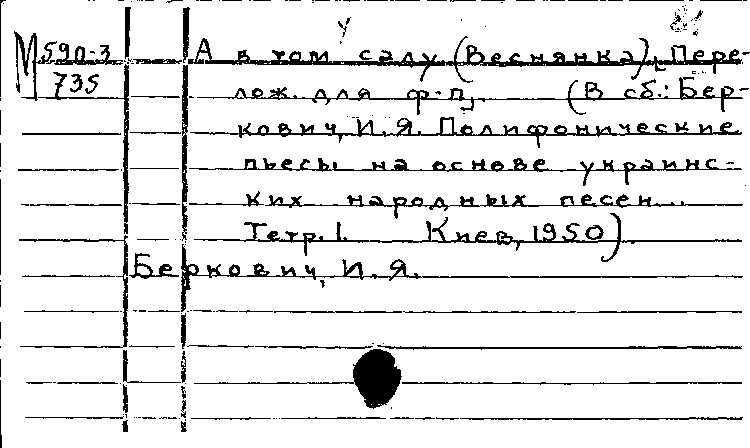 У
М 590-3 А в том саду (Веснянка). Пере-
735 лож. для ф-п. (В сб.: Бер-
кович, И. Я. Полифонические
пьесы на основе украинс-
ких народных песен...
Тетр. 1. Киев, 1950).
Беркович, И. Я.